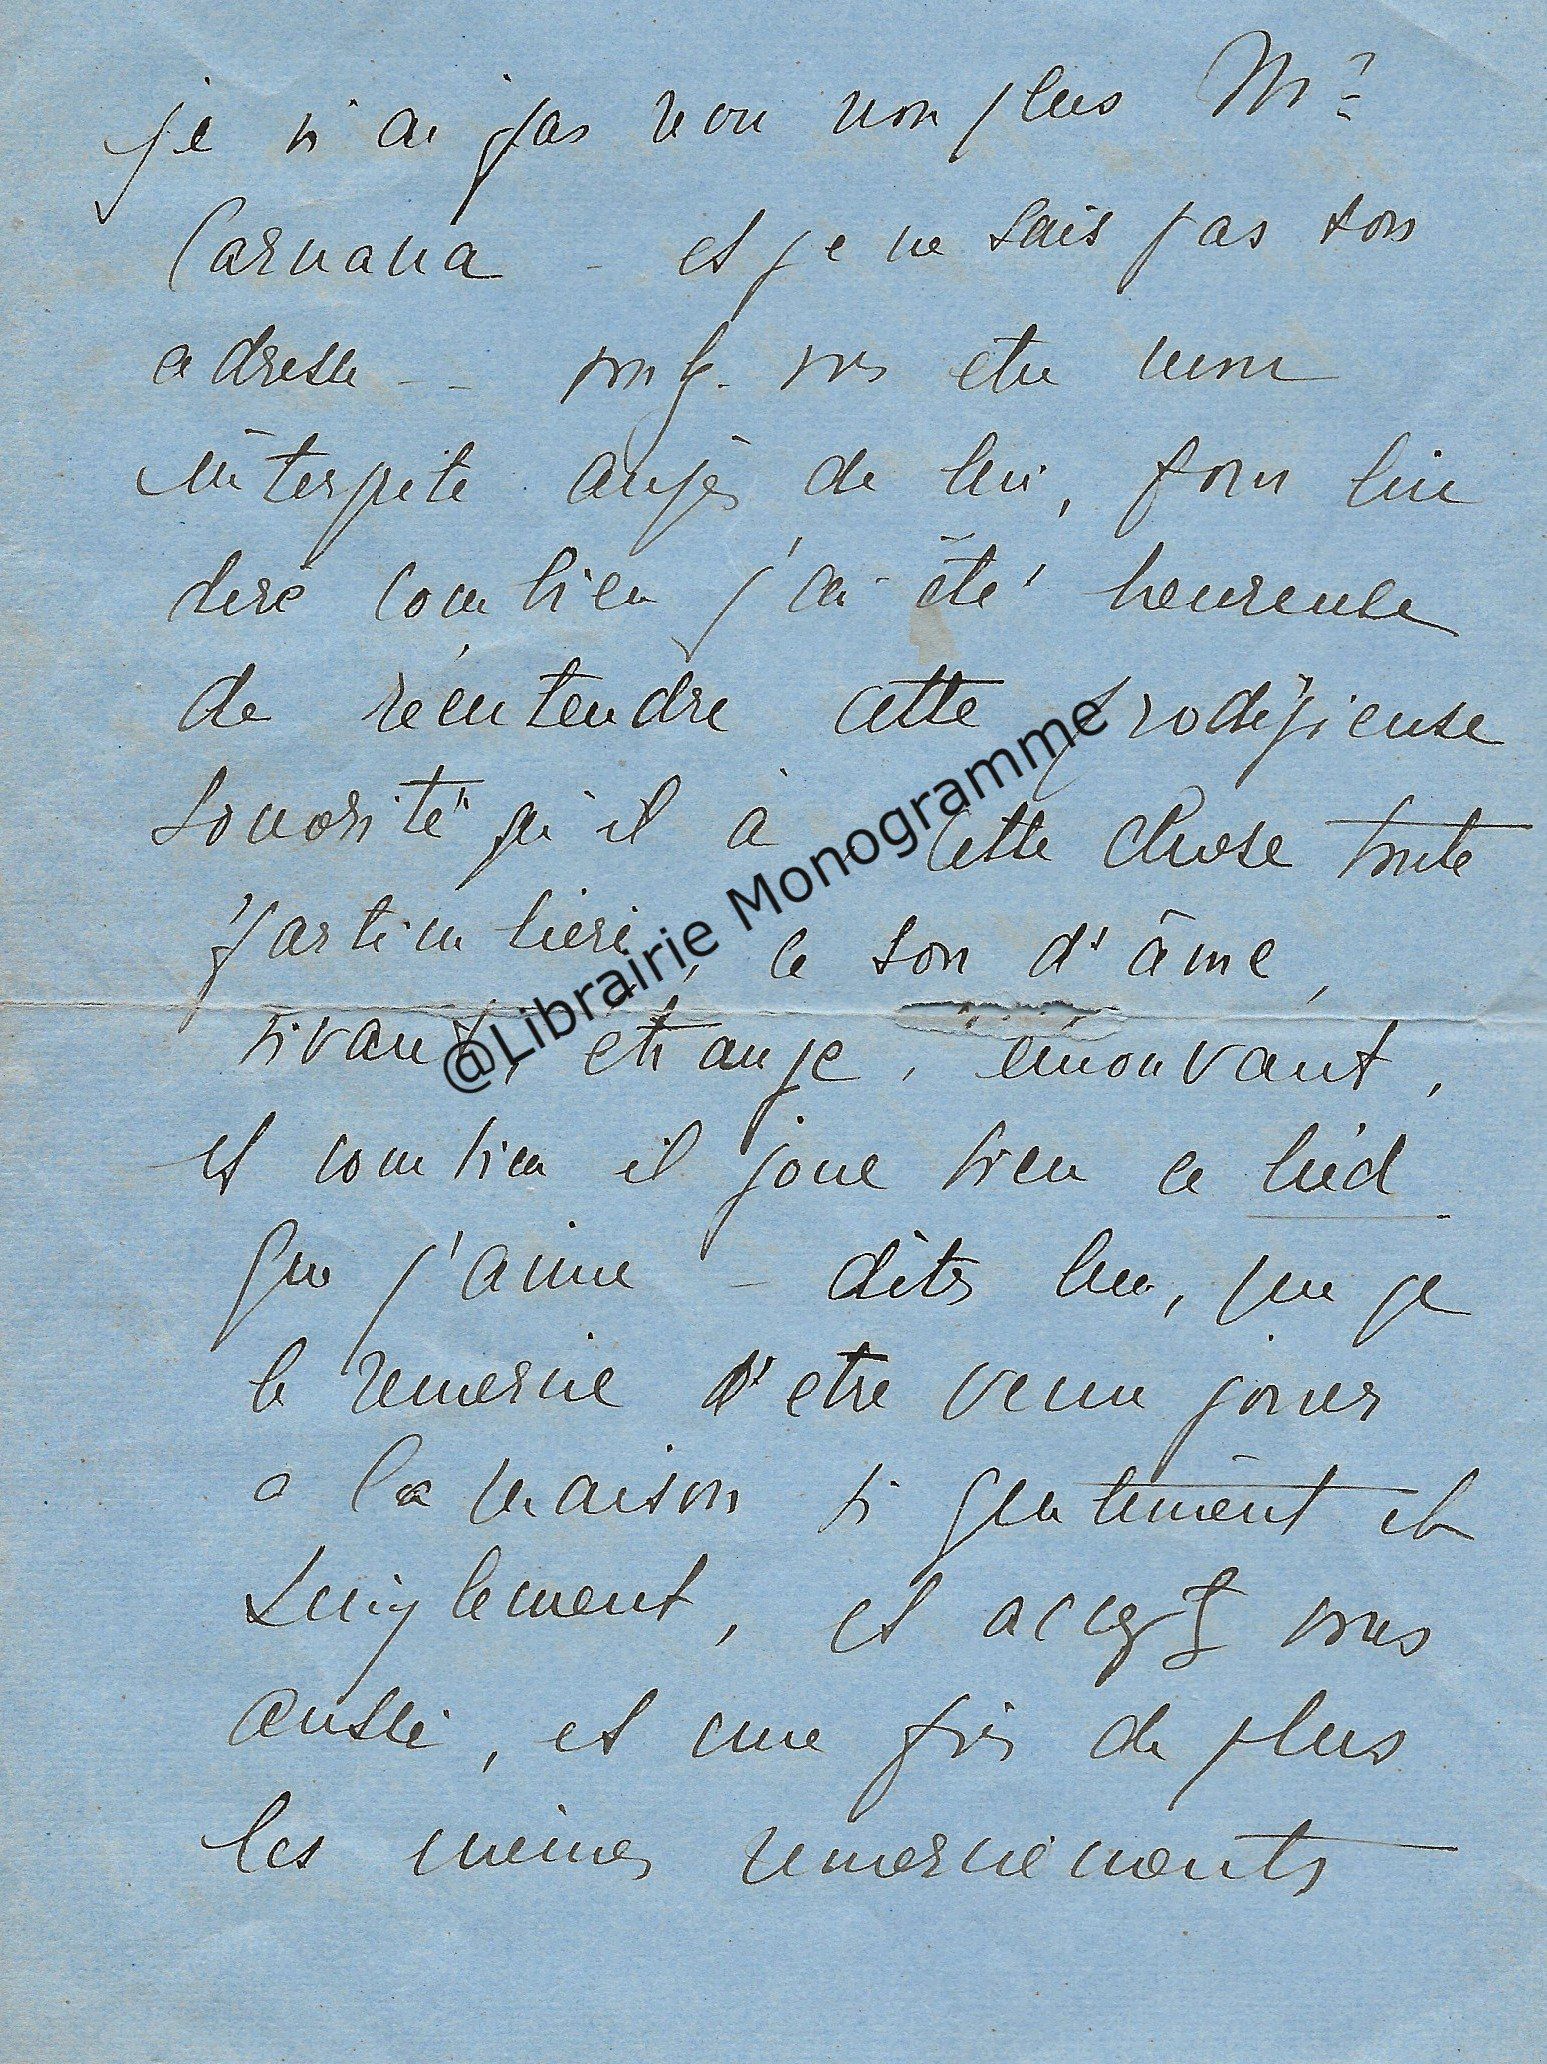 je n'ai pas revu non plus Mr
Caruana - et je ne sais pas son
adresse - - voulez-vous etre mon
interprète auprès de lui, pour lui
dire combien j'ai été heureuse
de réentendre cette prodigieuse
sonorité qu'il a - cette chose toute
particulière, le son d'âme,
vivant, etrange, émouvant,
et combien il joue bien ce lied
que j'aime - dites lui, que je
le remercie d'etre venu jouer
a la maison si gentiment et
simplement, et acceptez vous
aussi, et une fois de plus
les mêmes remerciements
@Librairie Monogramme